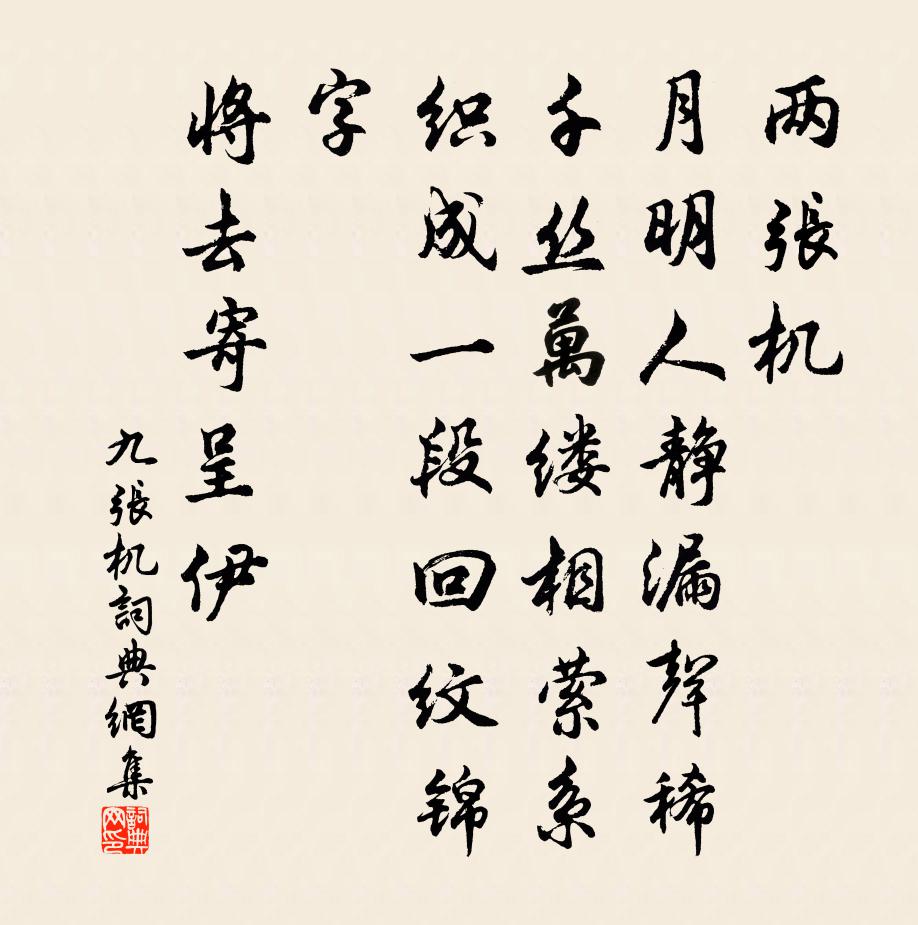 两張机
月明人静漏聲稀
千丝萬缕相萦系
织成一段回纹锦
字
将去寄呈伊
九張机詞典網集
詞典网印